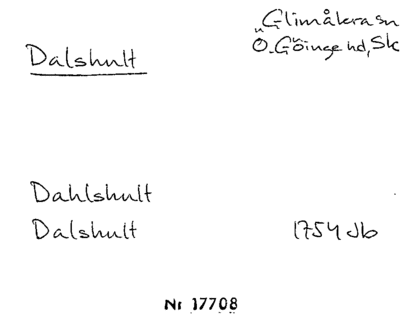 Dalshult
Glimåkra sn
Ö. Göinge hd, Sk
Dahlshult
Dalshult 1754 Jb
Nr 17708